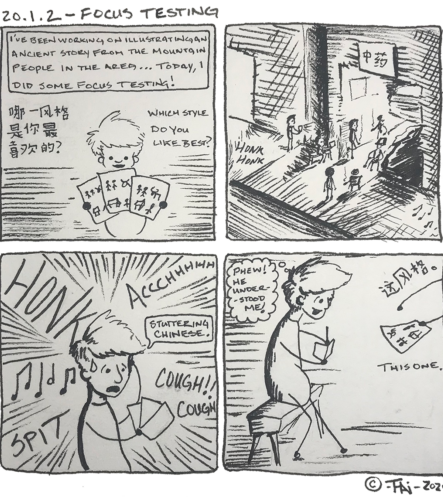 20.1.2 - FOCUS TESTING
I'VE BEEN WORKING ON ILLUSTRATING AN
ANCIENT STORY FROM THE MOUNTAIN
PEOPLE IN THE AREA... TODAY, I
DID SOME FOCUS TESTING!
哪一风格
是你最
喜欢的?
WHICH STYLE
DO YOU
LIKE BEST?
中药
HONK
HONK
HONK
ACCCHHHHH
STUTTERING
CHINESE.
COUGH!!
COUGH
SPIT
PHEW!
HE
UNDER-
STOOD
ME!
这风格。
THIS ONE.